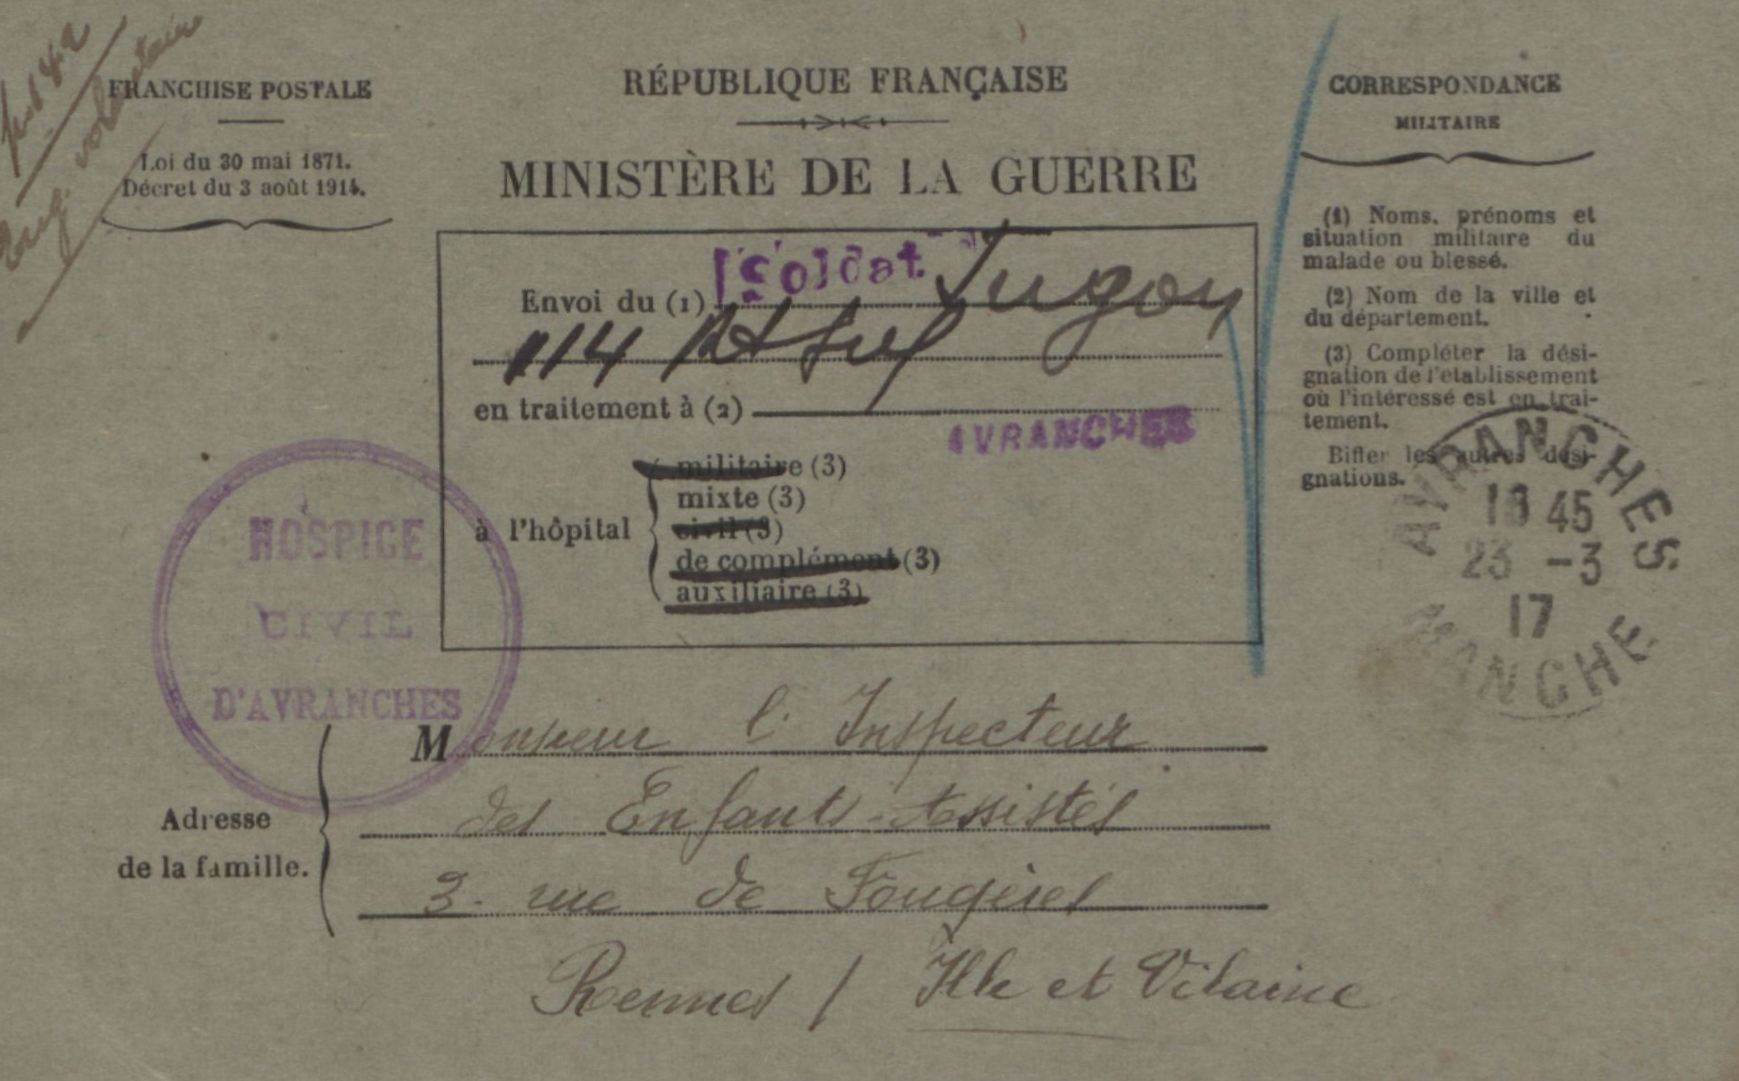 Eng. volontaire
FRANCHISE POSTALE
Loi du 30 mai 1871.
Décret du 3 août 1914.
RÉPUBLIQUE FRANÇAISE
MINISTÈRE DE LA GUERRE
CORRESPONDANCE
MILITAIRE
(1) Noms, prénoms et
situation militaire du
malade ou blessé.
(2) Nom de la ville et
du département.
(3) Compléter la dési-
gnation de l'établissement
où l'intéressé est en trai-
tement.
Biffer les autres dési-
gnations.
Envoi du (1) Soldat Jugon
114
en traitement à (2)
AVRANCHES
à l'hôpital
militaire (3)
mixte (3)
civil (3)
de complément (3)
auxiliaire (3)
HOSPICE
CIVIL
D'AVRANCHES
AVRANCHES
18 45
23 -3
17
MANCHE
Adresse
de la famille.
Monsieur l'Inspecteur
des Enfants-Assistés
3 - rue de Fougères
Rennes / Ille et Vilaine